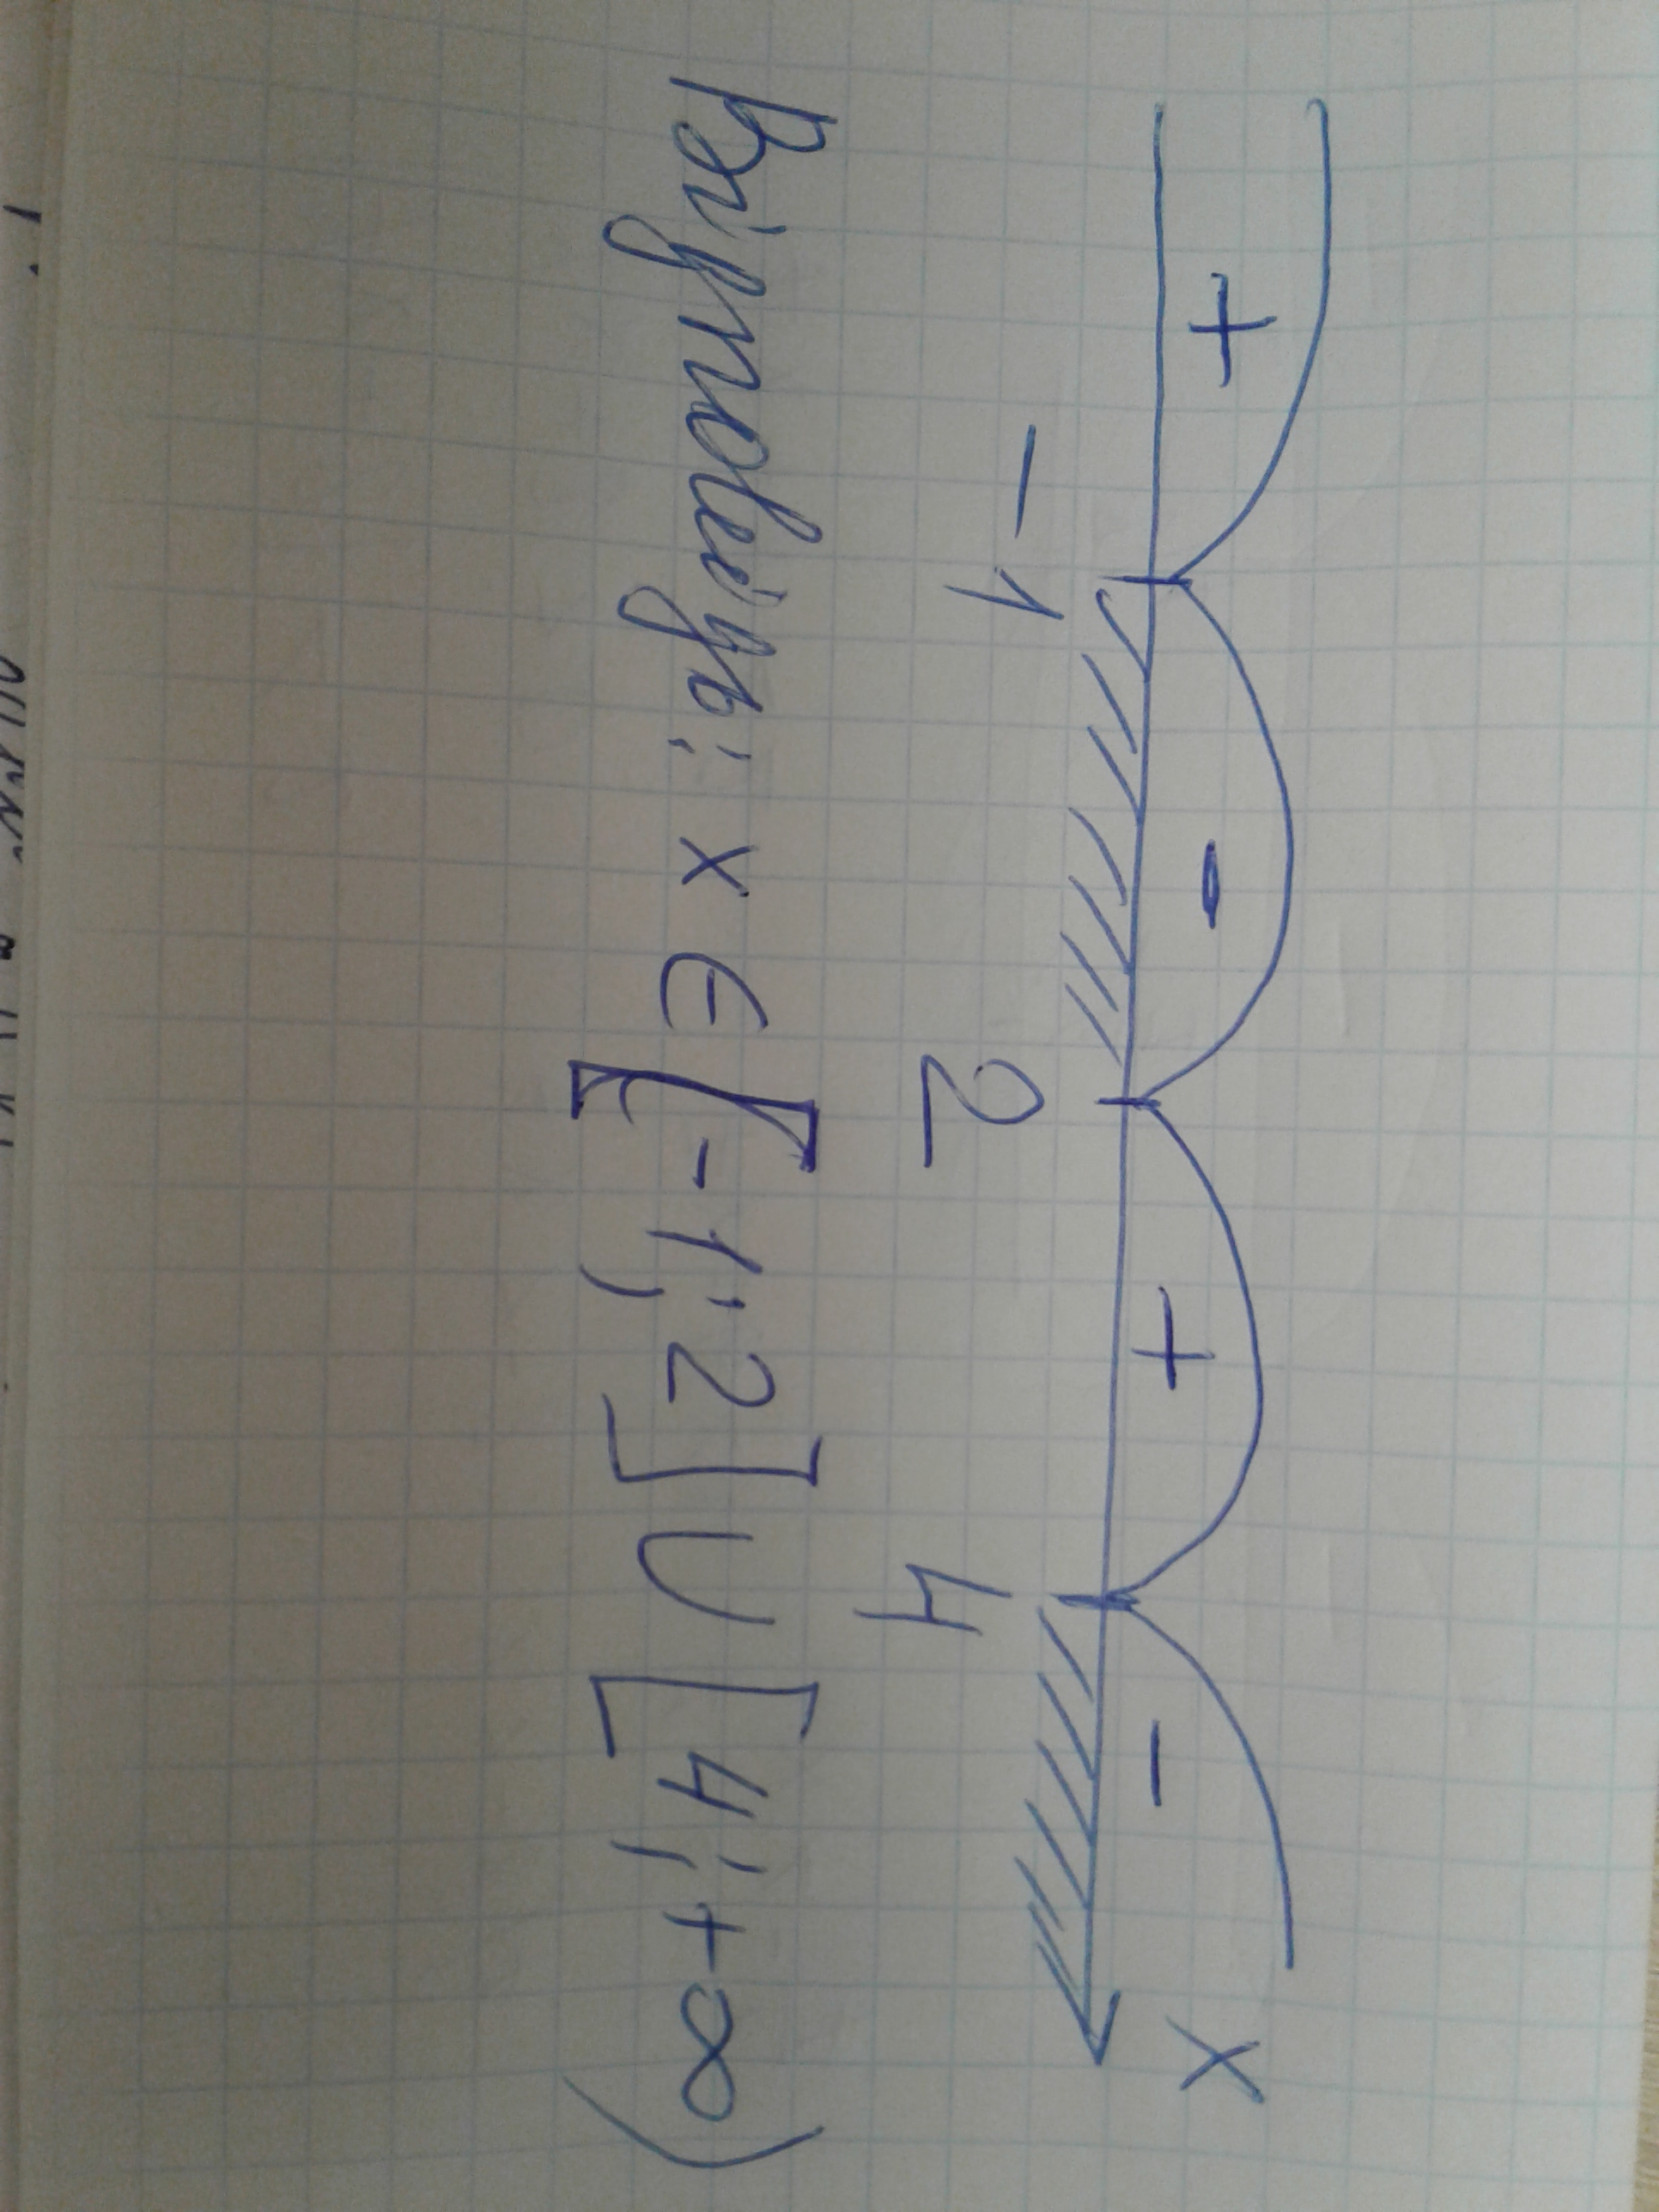 + - + - x
-1 2 4
Відповідь: x ∈ [-1; 2] ∪ [4; +∞)